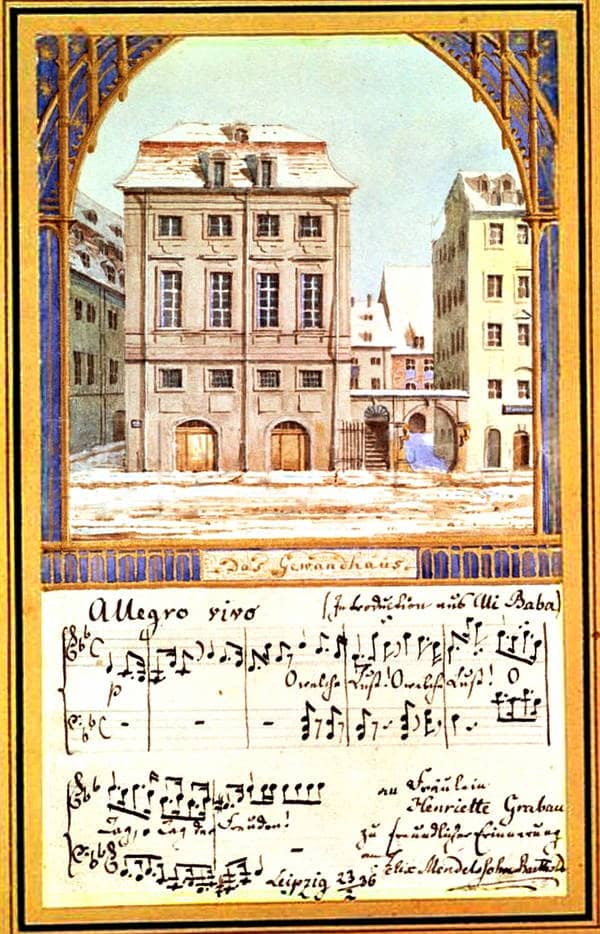 Das Gewandhaus.
Allegro vivo (Introduction aus Ali Baba)
p
O welche Lust! O welche Lust! O
Tag, o Tag der Freuden!
an Fräulein
Henriette Grabau
zu freundlicher Erinnerung
an Felix Mendelssohn Bartholdy
Leipzig 23/2 36